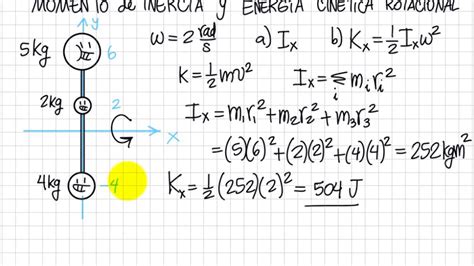 MOMENTO de INERCIA y ENERGÍA CINÉTICA ROTACIONAL
y
5kg 6 ω = 2 rad/s a) Iₓ b) Kₓ = ½ Iₓω²
K = ½ mv² Iₓ = Σᵢ mᵢrᵢ²
2kg 2 Iₓ = m₁r₁² + m₂r₂² + m₃r₃²
x
= (5)(6)² + (2)(2)² + (4)(4)² = 252 kgm²
4kg -4 Kₓ = ½ (252)(2)² = 504 J